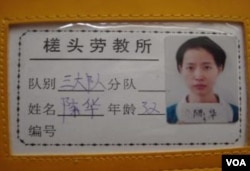 槎头劳教所
队别 三大队 分队
姓名 陈华 年龄 32
编号
陈华
VOA